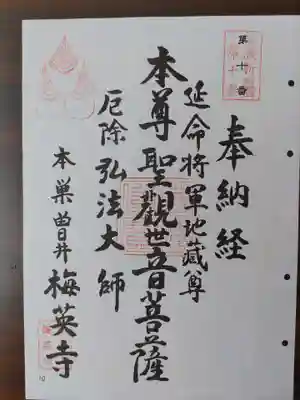 第十番
奉納経
延命将軍地蔵尊
本尊聖觀世音菩薩
厄除弘法大師
本巣曽井梅英寺
10